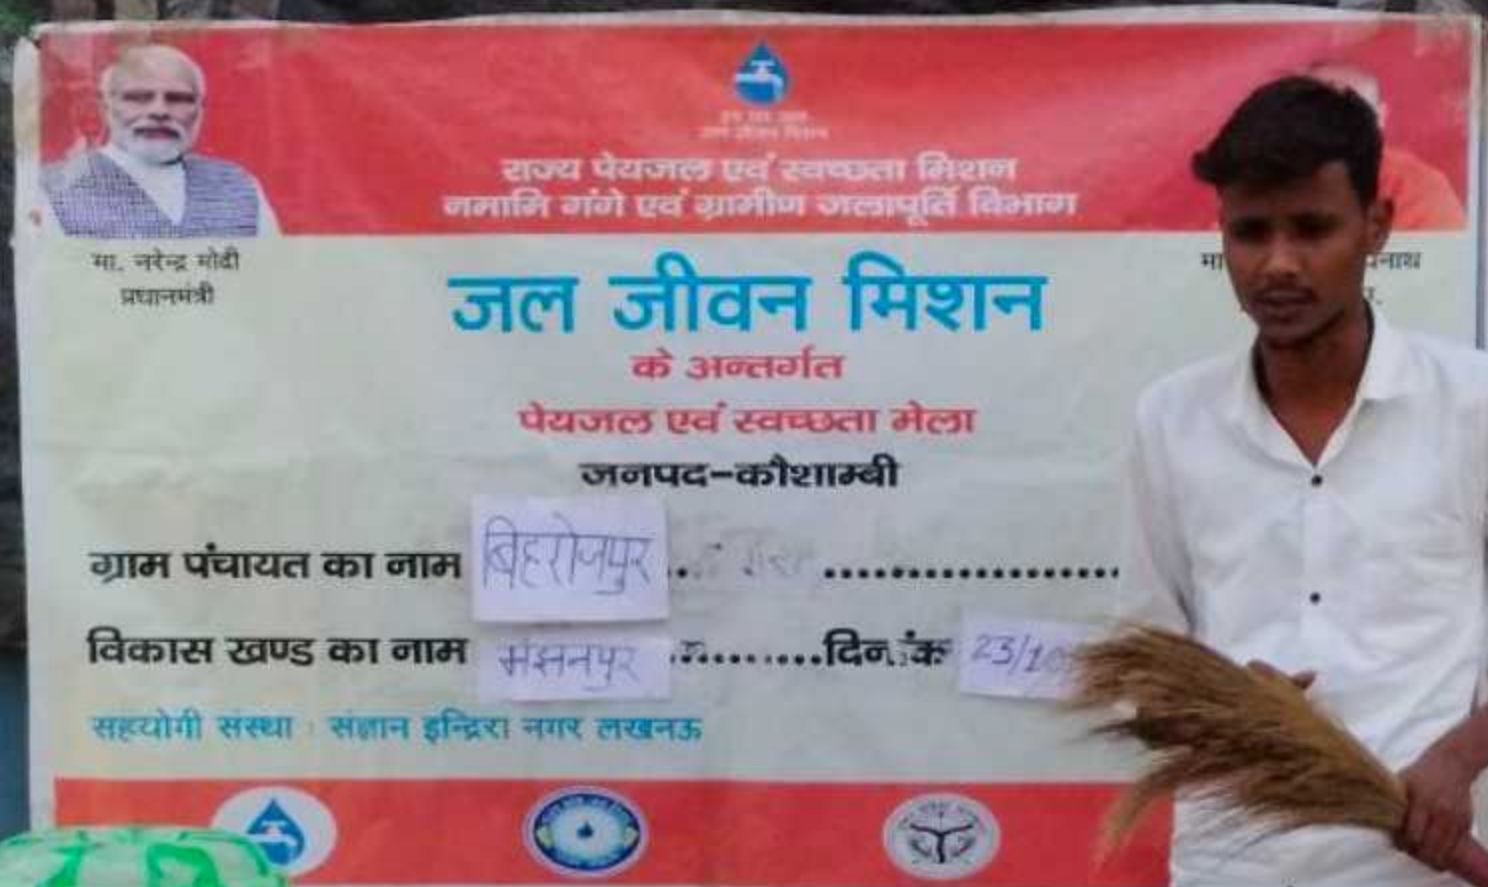 हर घर जल
जल जीवन मिशन
राज्य पेयजल एवं स्वच्छता मिशन
नमामि गंगे एवं ग्रामीण जलापूर्ति विभाग
मा. नरेन्द्र मोदी
प्रधानमंत्री
मा
नाथ
जल जीवन मिशन
के अन्तर्गत
पेयजल एवं स्वच्छता मेला
जनपद-कौशाम्बी
ग्राम पंचायत का नाम बिहरोजपुर
विकास खण्ड का नाम मंझनपुर दिनांक 23/10
सहयोगी संस्था : संज्ञान इन्दिरा नगर लखनऊ